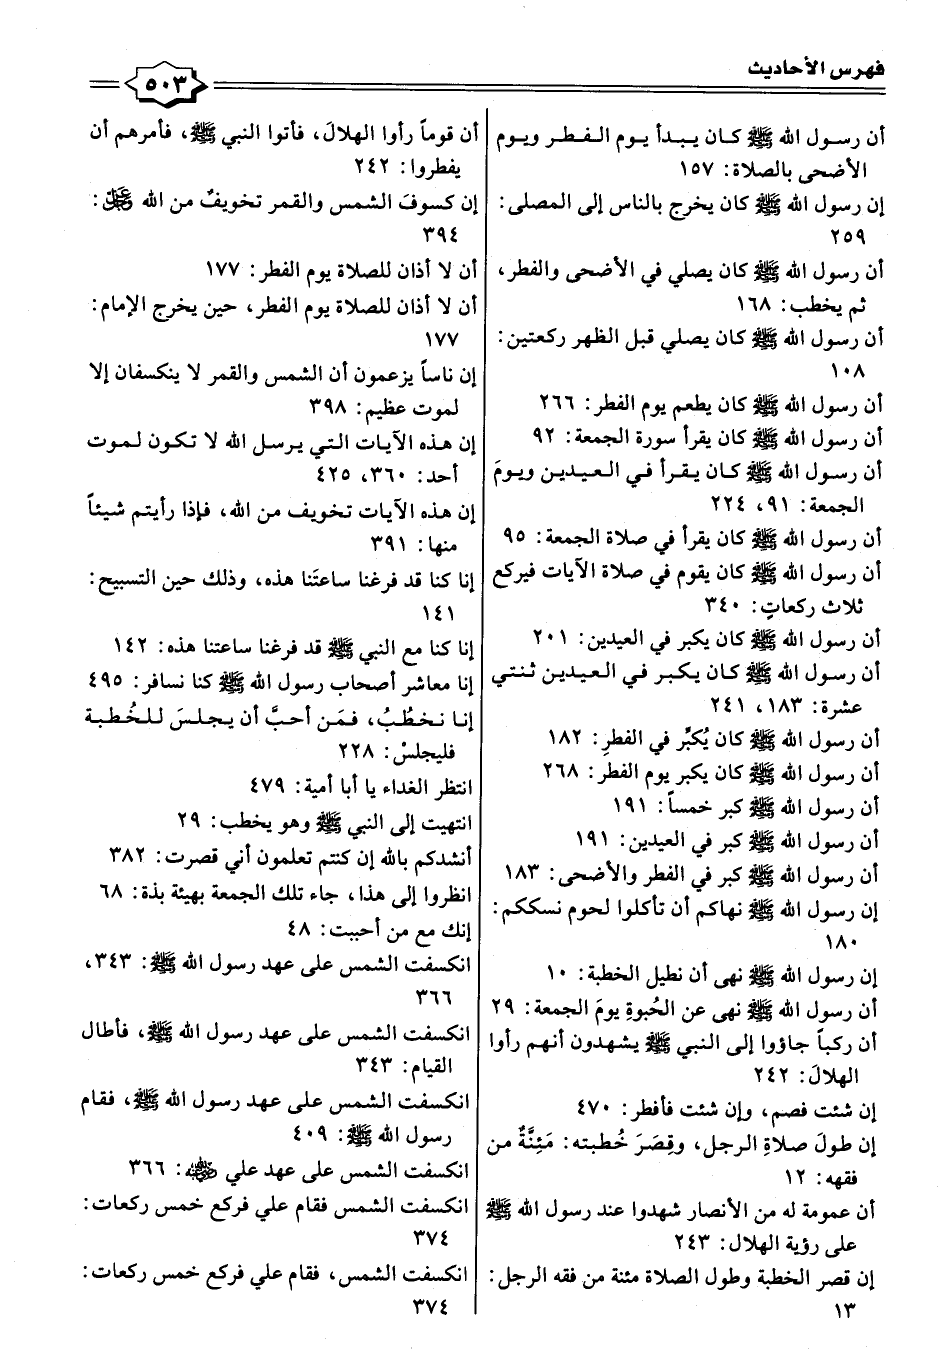 فهرس الأحاديث
٥٠٣
أن رسول الله ﷺ كان يبدأ يوم الفطر ويوم
الأضحى بالصلاة: ١٥٧
إن رسول الله ﷺ كان يخرج بالناس إلى المصلى:
٢٥٩
أن رسول الله ﷺ كان يصلي في الأضحى والفطر،
ثم يخطب: ١٦٨
أن رسول الله ﷺ كان يصلي قبل الظهر ركعتين:
١٠٨
أن رسول الله ﷺ كان يطعم يوم الفطر: ٢٦٦
أن رسول الله ﷺ كان يقرأ سورة الجمعة: ٩٢
أن رسول الله ﷺ كان يقرأ في العيدين ويومَ
الجمعة: ٩١، ٢٢٤
أن رسول الله ﷺ كان يقرأ في صلاة الجمعة: ٩٥
أن رسول الله ﷺ كان يقوم في صلاة الآيات فيركع
ثلاث ركعاتٍ: ٣٤٠
أن رسول الله ﷺ كان يكبر في العيدين: ٢٠١
أن رسول الله ﷺ كان يكبر في العيدين ثنتي
عشرة: ١٨٣، ٢٤١
أن رسول الله ﷺ كان يُكبِّر في الفطرِ: ١٨٢
أن رسول الله ﷺ كان يكبر يوم الفطر: ٢٦٨
أن رسول الله ﷺ كبر خمساً: ١٩١
أن رسول الله ﷺ كبر في العيدين: ١٩١
أن رسول الله ﷺ كبر في الفطر والأضحى: ١٨٣
إن رسول الله ﷺ نهاكم أن تأكلوا لحوم نسككم:
١٨٠
إن رسول الله ﷺ نهى أن نطيل الخطبة: ١٠
أن رسول الله ﷺ نهى عن الحُبوةِ يومَ الجمعة: ٢٩
أن ركباً جاؤوا إلى النبي ﷺ يشهدون أنهم رأوا
الهلالَ: ٢٤٢
إن شئت فصم، وإن شئت فأفطر: ٤٧٠
إن طولَ صلاةِ الرجل، وقِصَرَ خُطبته: مَئِنَّةٌ من
فقهه: ١٢
أن عمومة له من الأنصار شهدوا عند رسول الله ﷺ
على رؤية الهلال: ٢٤٣
إن قصر الخطبة وطول الصلاة مئنة من فقه الرجل:
١٣
أن قوماً رأوا الهلالَ، فأتوا النبي ﷺ، فأمرهم أن
يفطروا: ٢٤٢
إن كسوفَ الشمس والقمر تخويفٌ من الله ﷻ:
٣٩٤
أن لا أذان للصلاة يوم الفطر: ١٧٧
أن لا أذان للصلاة يوم الفطر، حين يخرج الإمام:
١٧٧
إن ناساً يزعمون أن الشمس والقمر لا ينكسفان إلا
لموت عظيم: ٣٩٨
إن هذه الآيات التي يرسل الله لا تكون لموت
أحد: ٣٦٠، ٤٢٥
إن هذه الآيات تخويف من الله، فإذا رأيتم شيئاً
منها: ٣٩١
إنا كنا قد فرغنا ساعتَنا هذه، وذلك حين التسبيح:
١٤١
إنا كنا مع النبي ﷺ قد فرغنا ساعتنا هذه: ١٤٢
إنا معاشر أصحاب رسول الله ﷺ كنا نسافر: ٤٩٥
إنا نخطُبُ، فمَن أحبَّ أن يجلسَ للخُطبة
فليجلسْ: ٢٢٨
انتظر الغداء يا أبا أمية: ٤٧٩
انتهيت إلى النبي ﷺ وهو يخطب: ٢٩
أنشدكم بالله إن كنتم تعلمون أني قصرت: ٣٨٢
انظروا إلى هذا، جاء تلك الجمعة بهيئة بذة: ٦٨
إنك مع من أحببت: ٤٨
انكسفت الشمس على عهد رسول الله ﷺ: ٣٤٣،
٣٦٦
انكسفت الشمس على عهد رسول الله ﷺ، فأطال
القيام: ٣٤٣
انكسفت الشمس على عهد رسول الله ﷺ، فقام
رسول الله ﷺ: ٤٠٩
انكسفت الشمس على عهد علي رضي الله عنه: ٣٦٦
انكسفت الشمس فقام علي فركع خمس ركعات:
٣٧٤
انكسفت الشمس، فقام علي فركع خمس ركعات:
٣٧٤